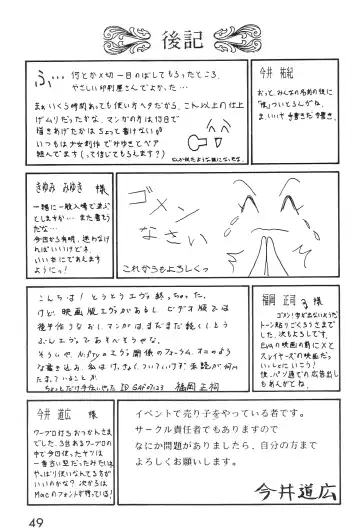 後記
ふ… 何とか〆切一日のばしてもらったところ、
やさしい印刷屋さんでよかった…
まぁいくら時間あっても使い方ヘタだから、これ以上の仕上
げムリだったかな、マンガの方は13日で
描きあげたかは ちょっと書けない
いつもは少女創作でみゆきとペア
組んでます(って信じてもらえます?)
今井 祐紀
おっと、みんなの名前の後に
「様」ついとるんがね。
ま、いいや 手書きだ 手書き。
きゆみ みゆき 様
一緒に一般入場で並ぶ
としますか… また書こう
だな…
今日から有明、迷わなけ
ればいいけどな。
いい本にであえます
ようにっ!
ゴメン
なさい
これからもよろしくっ
こんちは! とうとうエヴァ終っちゃった。
けど 映画版エヴァがあるし ビデオ版では
後半作りなおし、マンガはまだまだ続くしとう
ぶんエヴァであそべそうだな~。
そういや、Niftyのエヴァ関係のフォーラム、すごいのよう
な書き込み、私はけっきょくついていけず、話題が何み
たまっていることか
福岡 正祠
福岡 正司 様
ゴメン!字がないようだ
トーン貼りごくろうさまで
した、次もよろしくです、
Evaの映画の前にXと
スレイヤーズの映画だっ
いっしょにいこう!
後、パソ通での広告出し
もありがとね。
今井 道広 様
ワープロ打ちおつかんさまで
でした、3台あるワープロの中
で今回使ったヤツは
一番古い足だったみたいね
やっぱり使いなんてる方が
いいのかな? 次からは
Macのフォントが待っている!
イベントで売り子をやっている者です。
サークル責任者でもありますので
なにか問題がありましたら、自分の方まで
よろしくお願いします。
今井道広
49